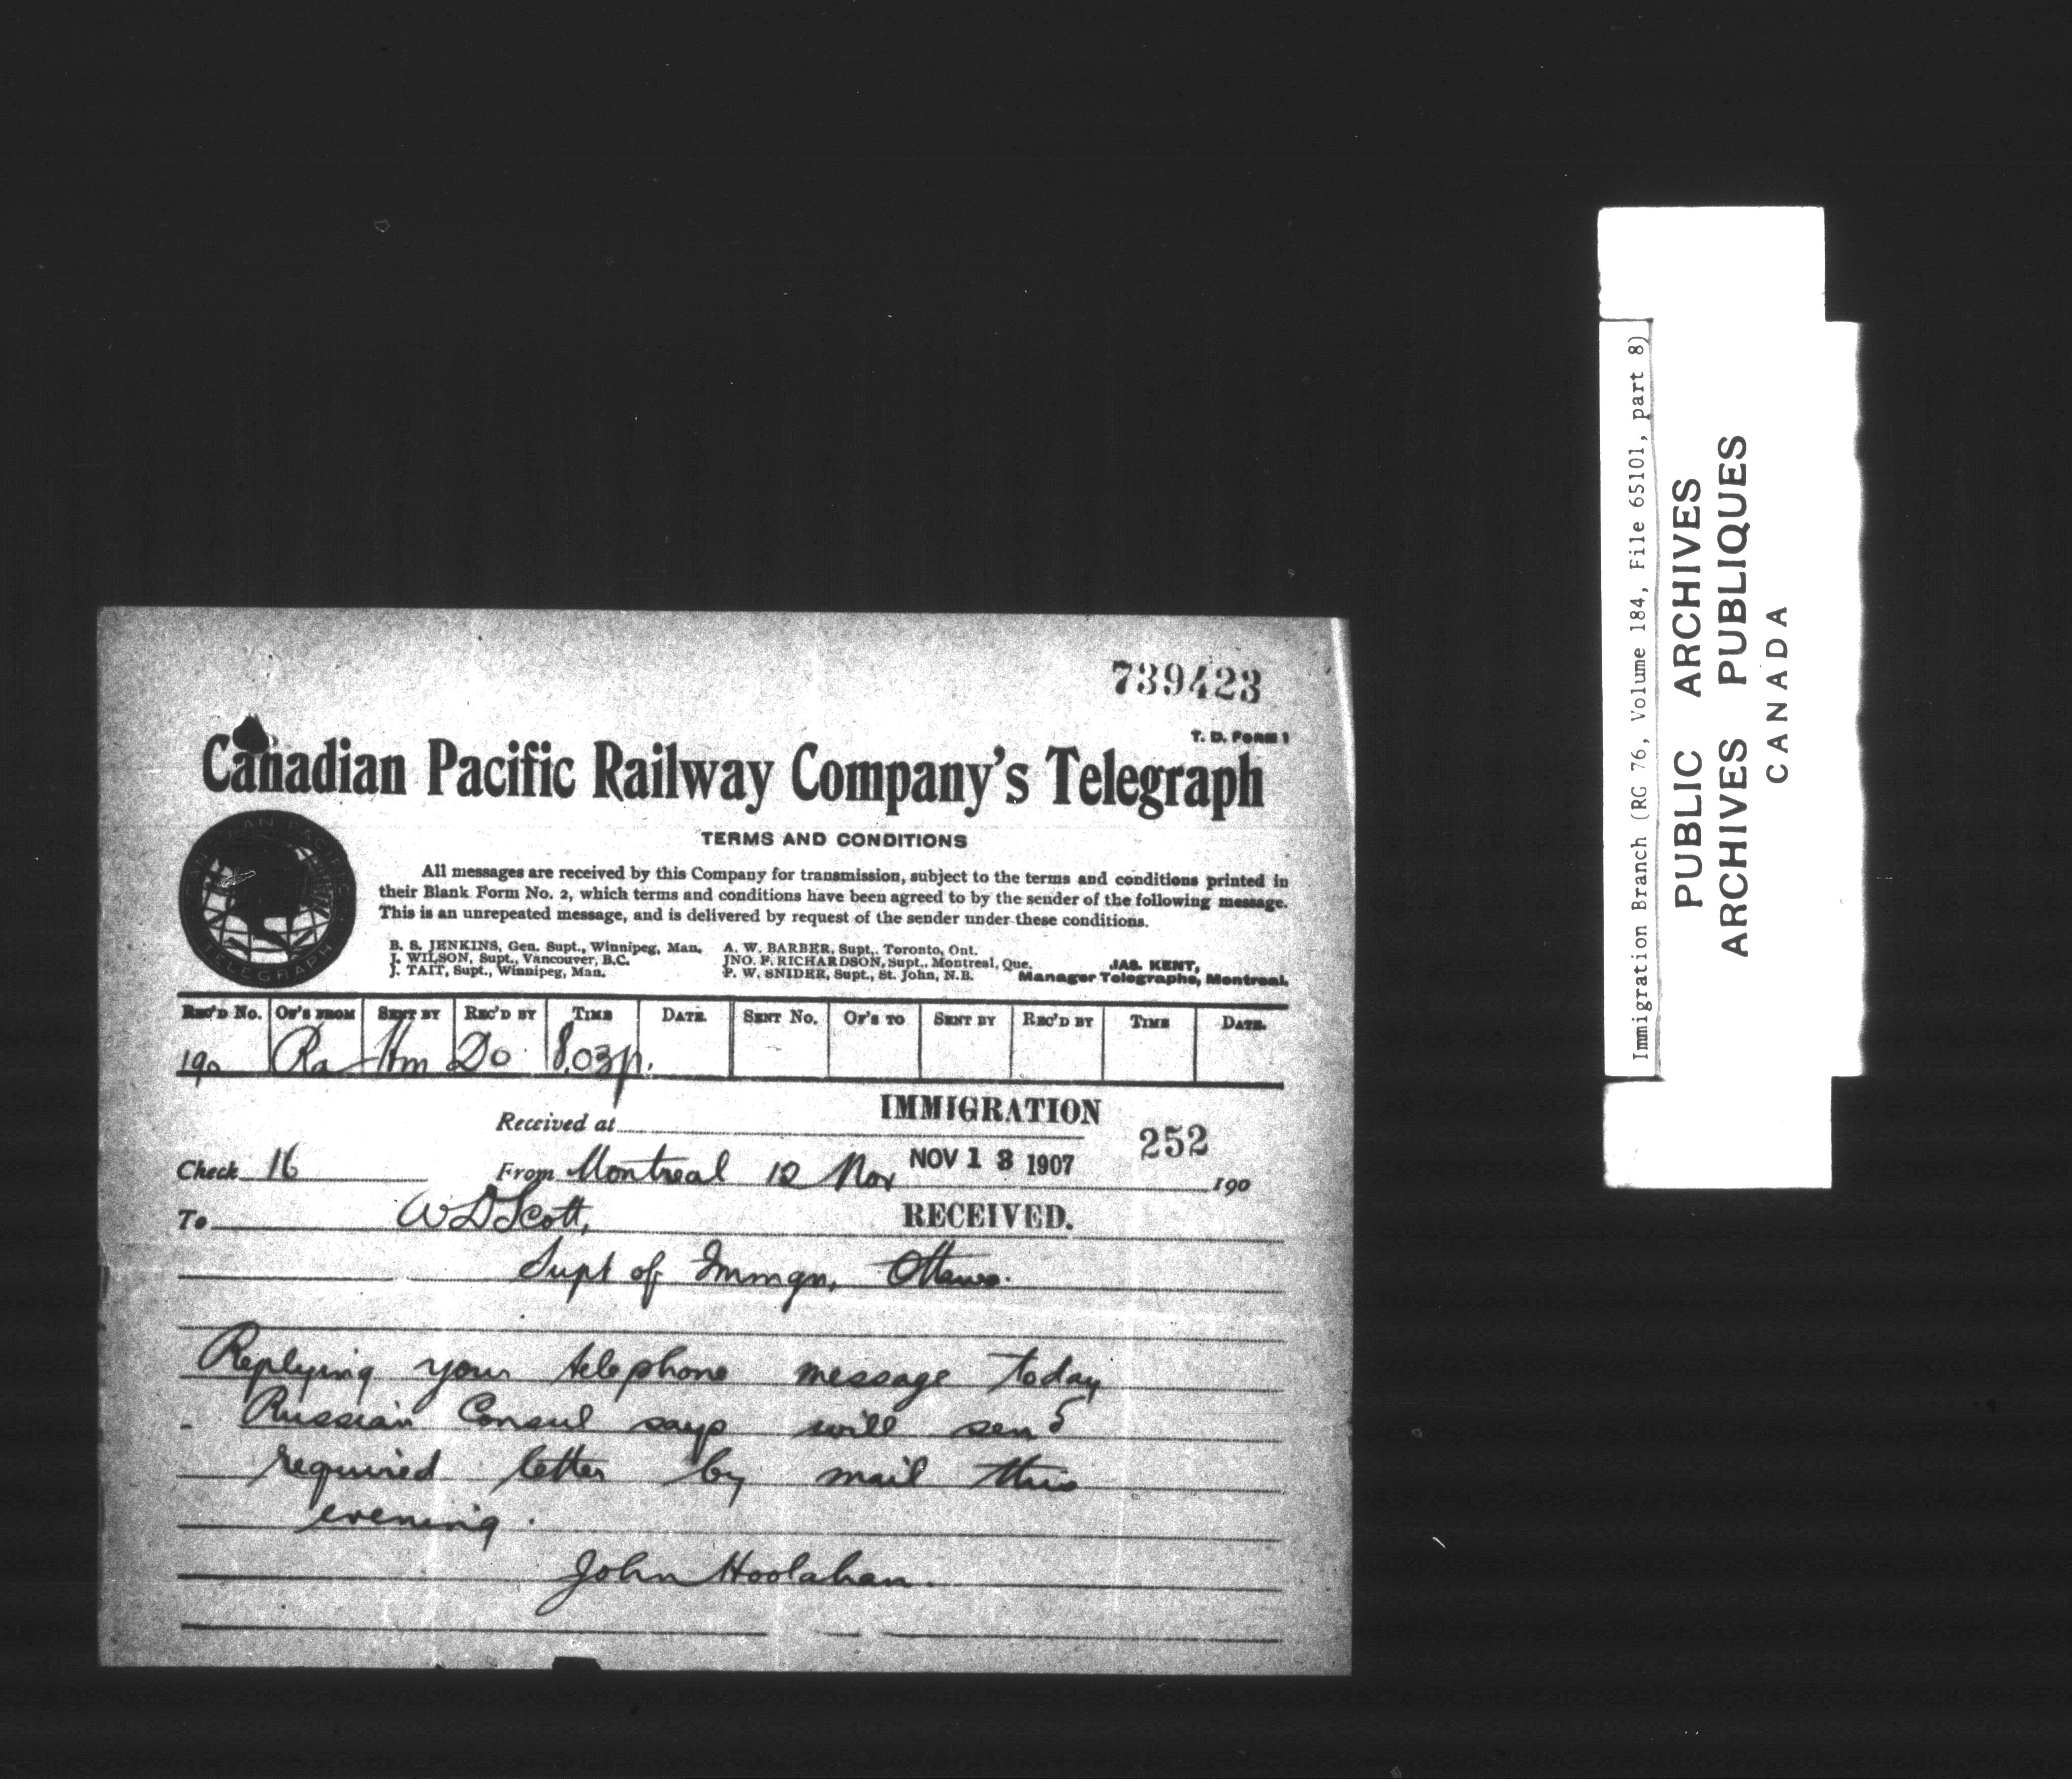 739423
T. D. Form 1
Canadian Pacific Railway Company's Telegraph
CANADIAN PACIFIC
TELEGRAPH
TERMS AND CONDITIONS
All messages are received by this Company for transmission, subject to the terms and conditions printed in
their Blank Form No. 2, which terms and conditions have been agreed to by the sender of the following message.
This is an unrepeated message, and is delivered by request of the sender under these conditions.
B. S. JENKINS, Gen. Supt., Winnipeg, Man.
J. WILSON, Supt., Vancouver, B.C.
J. TAIT, Supt., Winnipeg, Man.
A. W. BARBER, Supt., Toronto, Ont.
JNO. F. RICHARDSON, Supt., Montreal, Que.
P. W. SNIDER, Supt., St. John, N.B.
JAS. KENT,
Manager Telegraphs, Montreal.
REC'D No. OF'S FROM SENT BY REC'D BY TIME DATE. SENT No. OF'S TO SENT BY REC'D BY TIME DATE.
190 Ra Hm Do 8.03p.
IMMIGRATION
Received at
252
Check 16 From Montreal 12 Nov NOV 13 1907 190
To W D Scott, RECEIVED.
Supt of Immgn, Ottawa.
Replying your telephone message today
Russian Consul says will send
required letter by mail this
evening.
John Hoolahan.
Immigration Branch (RG 76, Volume 184, File 65101, part 8)
PUBLIC ARCHIVES
ARCHIVES PUBLIQUES
CANADA